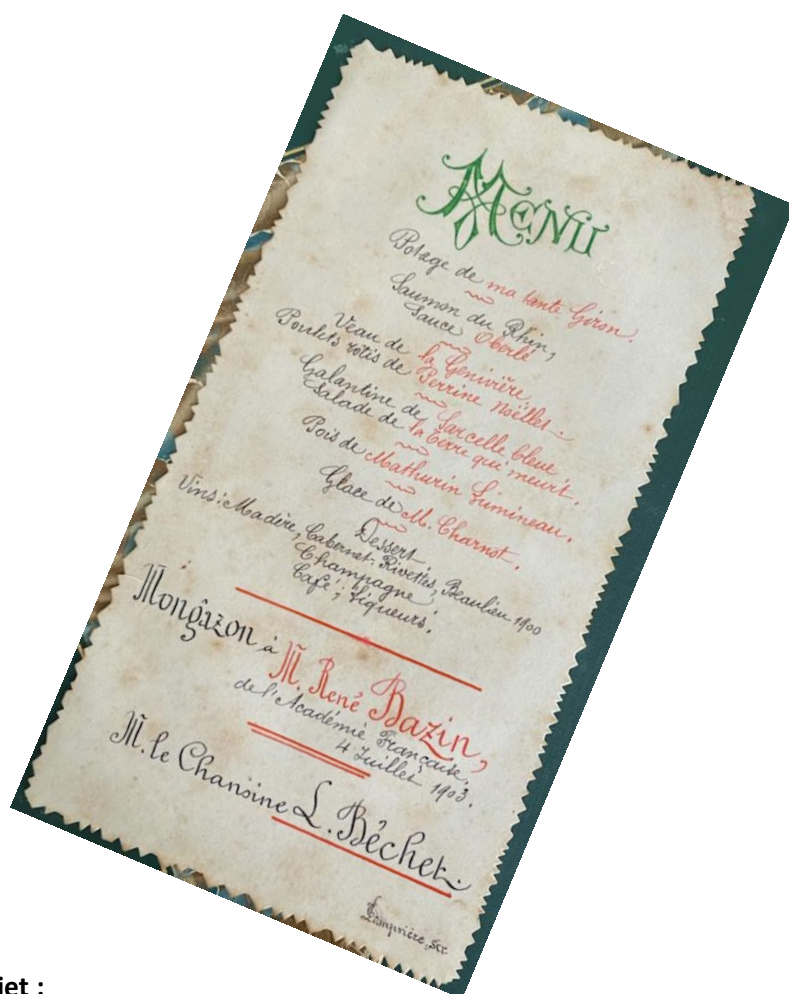 Menu
Potage de ma tante Giron.
Saumon du Rhin,
Sauce Oberlé
Veau de la Genivière,
Poulets rôtis de Perrine Noëlles.
Galantine de Sarcelle bleue,
Salade de la terre qui meurt.
Pois de Mathurin Lumineau.
Glace de M. Charnot.
Dessert.
Vins: Madère, Cabernet-Rivettes, Beaulieu 1900
Champagne;
Café; Liqueurs.
Mongazon à
M. René Bazin,
de l'Académie Française.
4 Juillet 1903.
M. le Chanoine L. Béchet.
Lamprière, scr
jet :